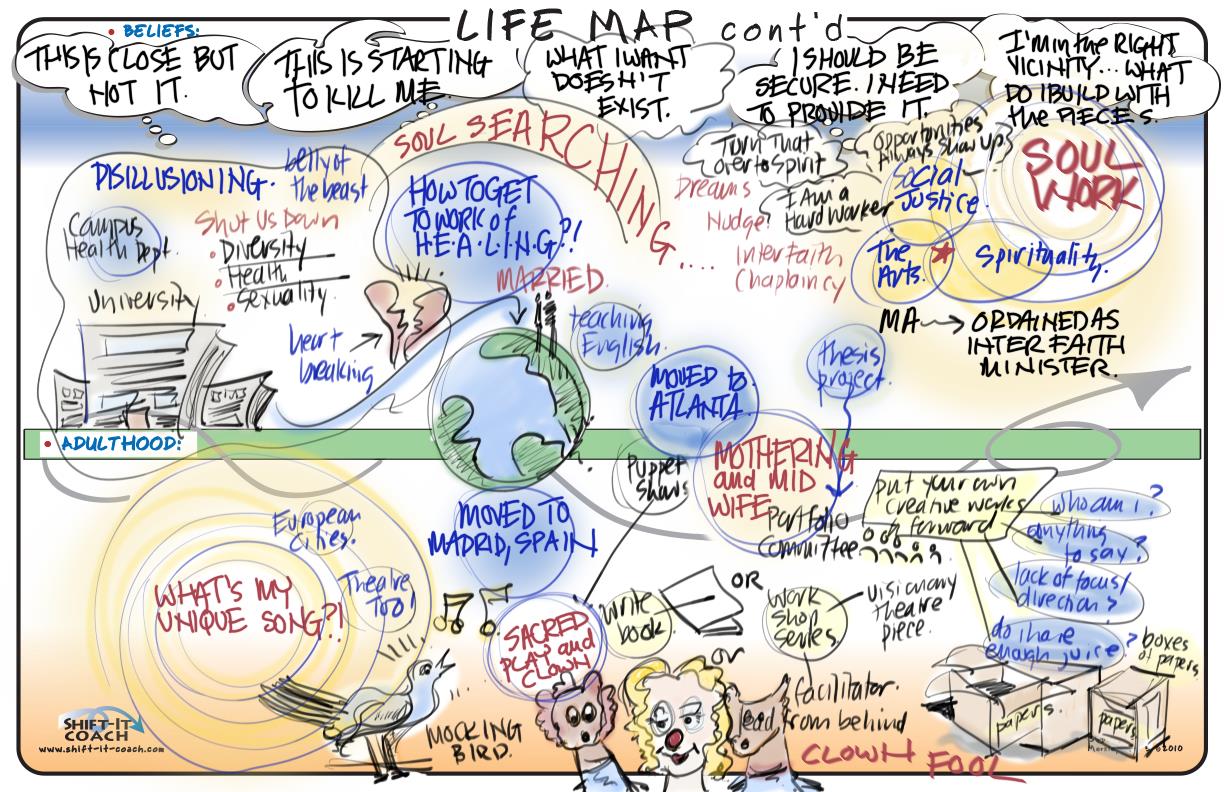 LIFE MAP cont'd
• BELIEFS:
THIS IS CLOSE BUT
NOT IT.
THIS IS STARTING
TO KILL ME.
WHAT I WANT
DOESN'T
EXIST.
I SHOULD BE
SECURE. I NEED
TO PROVIDE IT.
I'M in the RIGHT
VICINITY... WHAT
DO I BUILD WITH
the PIECES.
DISILLUSIONING.
belly of
the beast
Campus
Health Dept.
Shut Us Down
• Diversity
• Health
• Sexuality.
University
heart
breaking
SOUL SEARCHING....
HOW TO GET
TO WORK of
H•E•A•L•I•N•G?!
MARRIED.
teaching
English.
Turn That
over to Spirit
Opportunities
Always Show Up
Dreams
Nudge?
I Am a
Hard Worker
Interfaith
Chaplaincy
Social
Justice.
SOUL
WORK
The
Arts.
*
Spirituality.
MA → ORDAINED AS
INTERFAITH
MINISTER.
MOVED to
ATLANTA.
thesis
project.
• ADULTHOOD:
Puppet
Shows
MOTHERING
and MID
WIFE
Portfolio
Committee
put your own
creative works
forward
who am i?
anything
to say?
lack of focus/
direction?
do i have
enough juice?
boxes
of papers
European
Cities.
Theatre
Too!
WHAT'S MY
UNIQUE SONG?!
MOVED TO
MADRID, SPAIN
SACRED
PLAY and
CLOWN
write
book.
OR
work
shop
series
visionary
theatre
piece.
or
facilitator.
lead from behind
CLOWN FOOL
MOCKING
BIRD.
papers.
papers
SHIFT-IT
COACH
www.shift-it-coach.com
2010